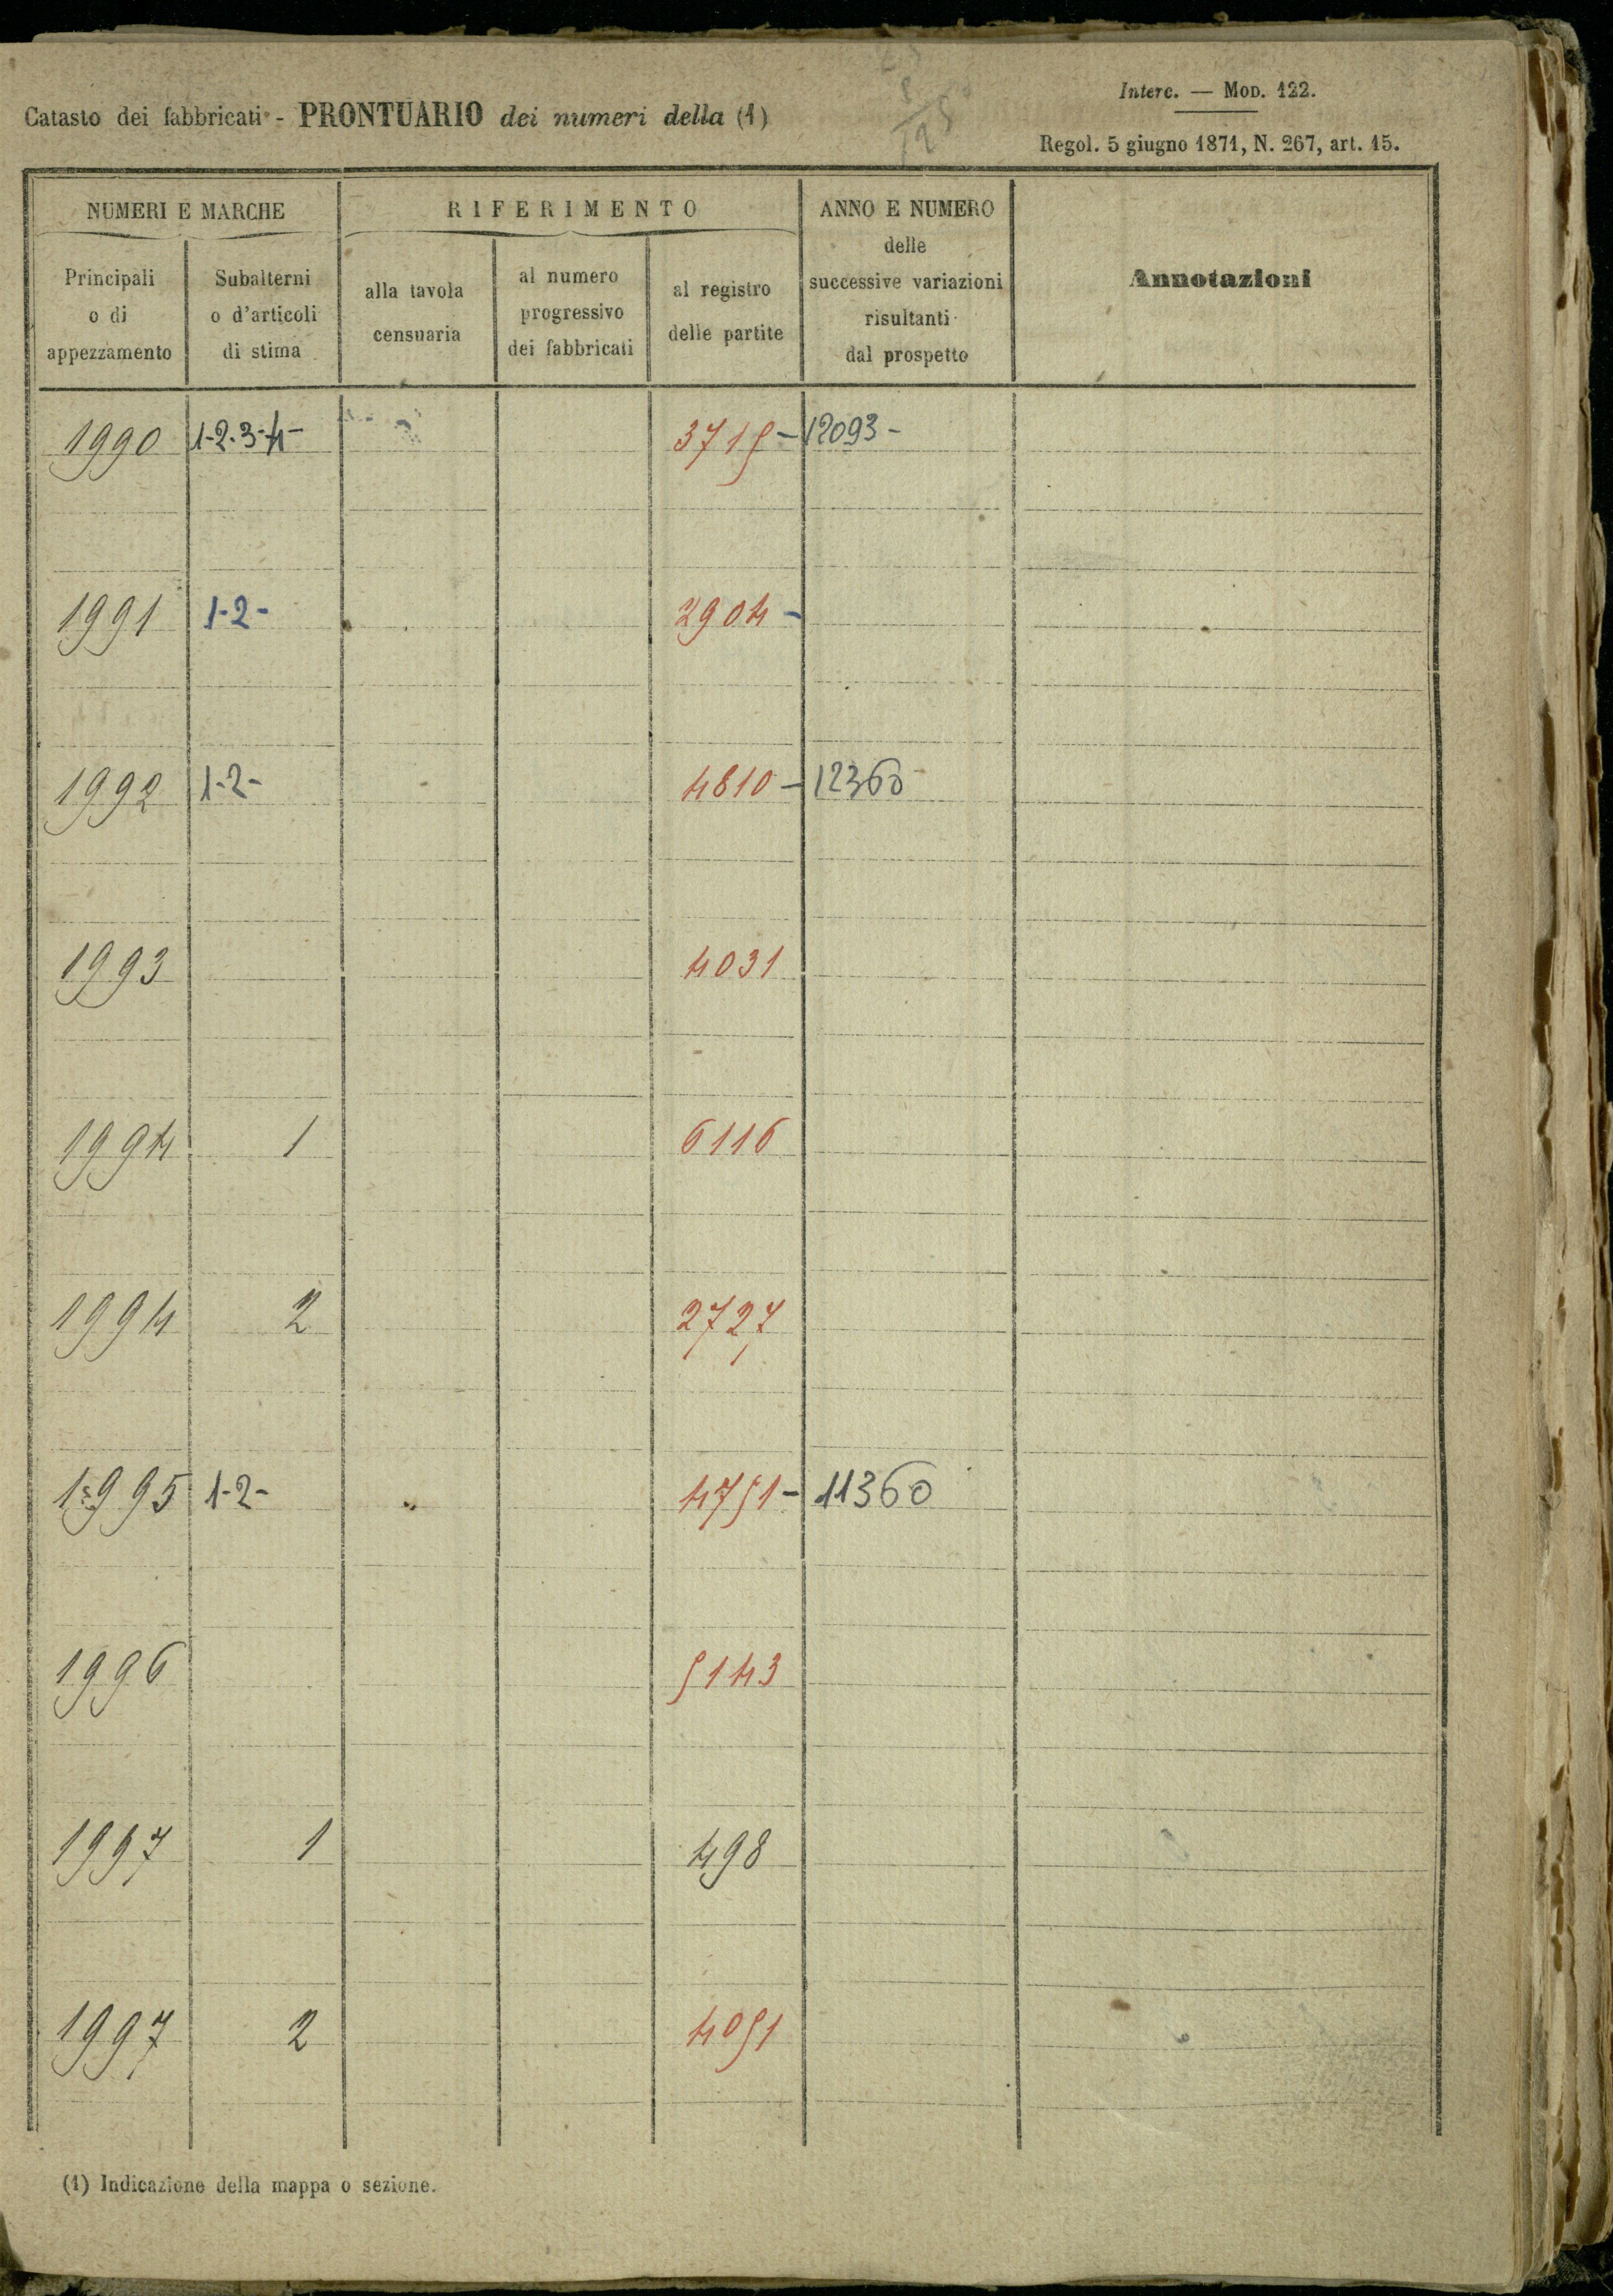 Catasto dei fabbricati - PRONTUARIO dei numeri della (1)
Interc. — Mod. 122.
Regol. 5 giugno 1871, N. 267, art. 15.
NUMERI E MARCHE
RIFERIMENTO
ANNO E NUMERO
delle
successive variazioni
risultanti
dal prospetto
Annotazioni
Principali
o di
appezzamento
Subalterni
o d'articoli
di stima
alla tavola
censuaria
al numero
progressivo
dei fabbricati
al registro
delle partite
1990 1-2-3-4- 3715- 12093-
1991 1-2- 2904-
1992 1-2- 4810- 12360
1993 4031
1994 1 6116
1994 2 2727
1995 1-2- 4751- 11360
1996 5143
1997 1 498
1997 2 4051
(1) Indicazione della mappa o sezione.